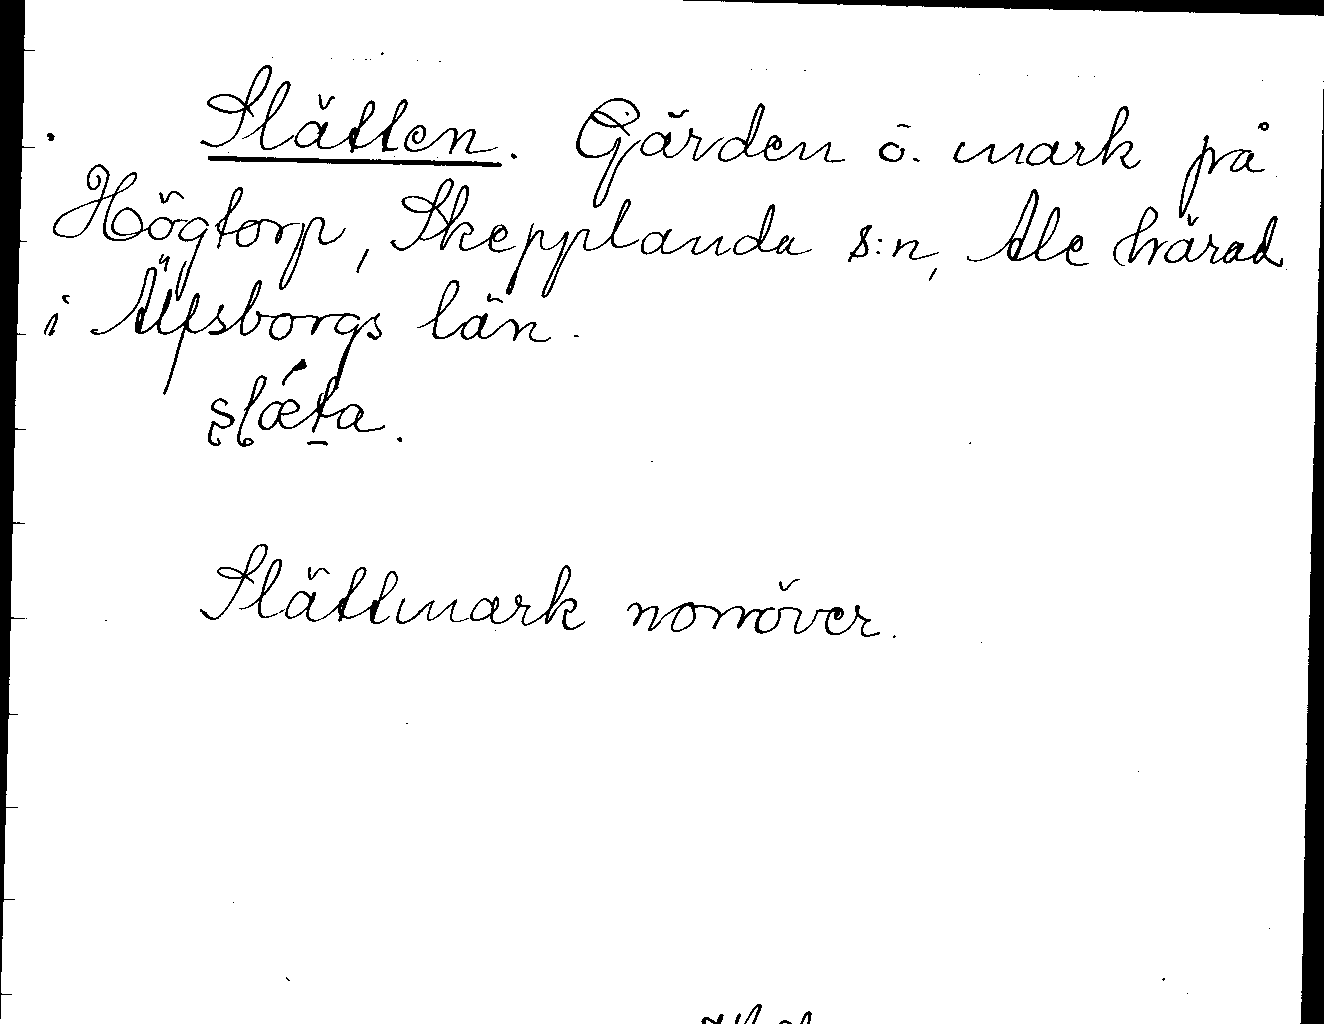 Slätten. Gärden ö. mark på
Högtorp, Skepplanda s:n, Ale härad
i Älfsborgs län.
slǽta.
Slättmark norröver.